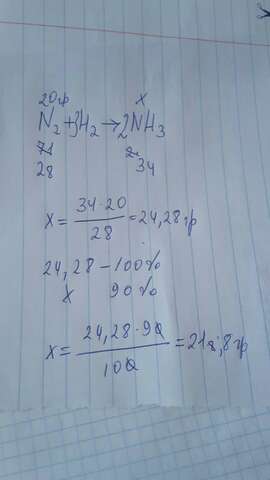 20гр x
N₂+3H₂→2NH₃
28 34
x = 34·20 / 28 = 24,28гр
24,28 – 100%
x 90%
x = 24,28·90 / 100 = 21,8гр